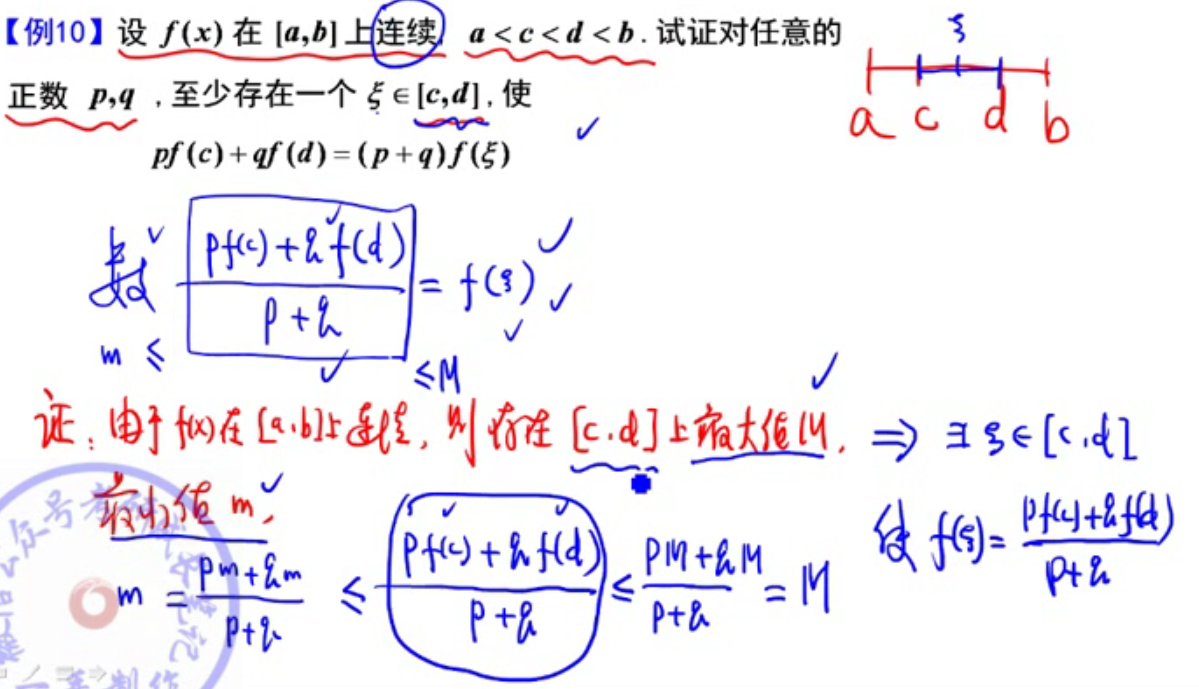 【例10】设 f(x) 在 [a,b] 上连续, a<c<d<b. 试证对任意的
正数 p,q ,至少存在一个 ξ∈[c,d], 使
pf(c)+qf(d)=(p+q)f(ξ)
ξ
a c d b
数 (pf(c)+qf(d))/(p+q) = f(ξ)
m ≤ ≤M
证: 由于 f(x) 在 [a,b] 上连续, 则存在 [c,d] 上最大值 M, ⇒ ∃ ξ∈[c,d]
最小值 m,
使 f(ξ)= (pf(c)+qf(d))/(p+q)
m = (pm+qm)/(p+q) ≤ (pf(c)+qf(d))/(p+q) ≤ (pM+qM)/(p+q) = M